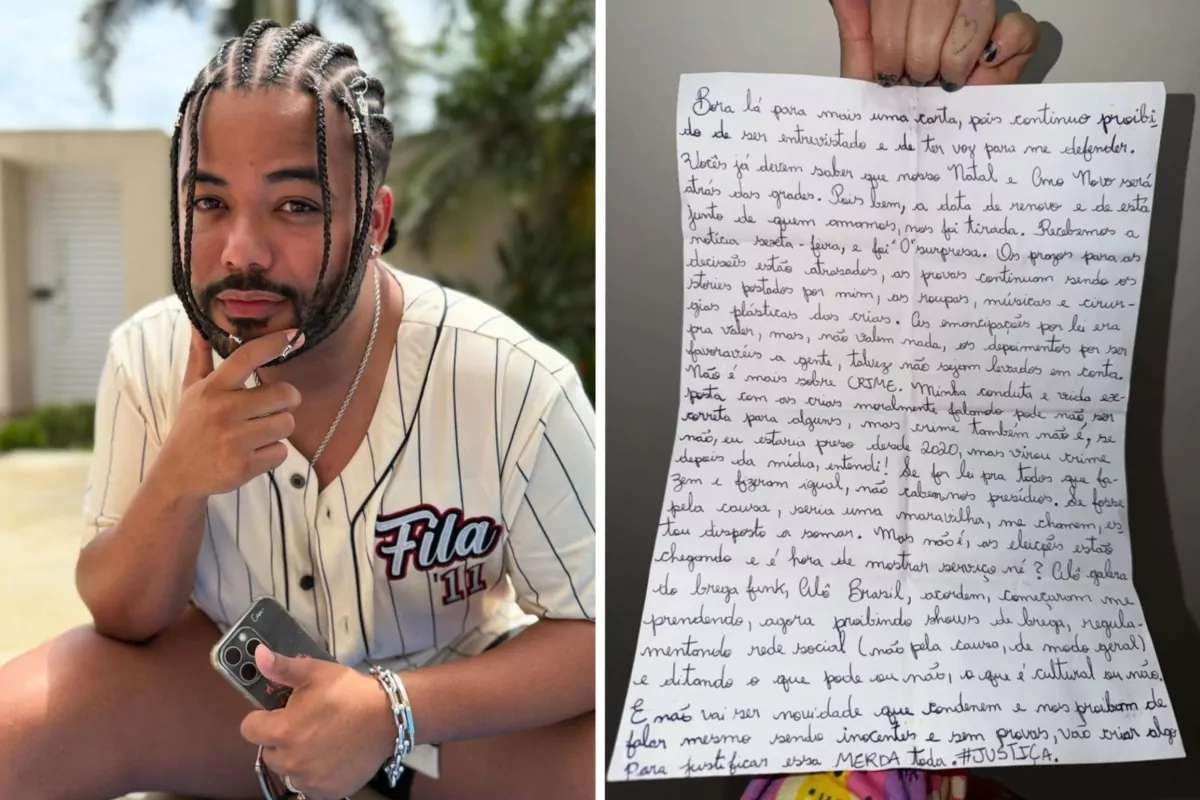 Fila
'11
Bora lá para mais uma carta, pois continuo proibi-
do de ser entrevistado e de ter voz para me defender.
Vocês já devem saber que nosso Natal e Ano Novo será
atrás das grades. Pois bem, a data de renovo e de está
junto de quem amamos, nos foi tirada. Recebemos a
notícia sexta-feira, e foi "0" surpresa. Os prazos para as
decisões estão atrasados, as provas continuam sendo os
stories postados por mim, as roupas, músicas e cirur-
gias plásticas das crias. As emancipações por lei era
pra valer, mas, não valem nada, os depoimentos por ser
favoravéis a gente, talvez não sejam levados em conta.
Não é mais sobre CRIME. Minha conduta e vida ex-
posta com as crias moralmente falando pode não ser
correta para alguns, mas crime também não é, se
não, eu estaria preso desde 2020, mas virou crime
depois da mídia, entendi! Se for lei pra todos que fa-
zem e fizeram igual, não cabem nos presídios. Se fosse
pela causa, seria uma maravilha, me chamem, es-
tou disposto a somar. Mas não é, as eleições estão
chegando e é hora de mostrar serviço né? Alô galera
do brega funk, Alô Brasil, acordem, começaram me
prendendo, agora proibindo shows de brega, regula-
mentando rede social (não pela causa, de modo geral)
e ditando o que pode ou não, o que é cultural ou não.
E não vai ser novidade que condenem e nos proibam de
falar mesmo sendo inocentes e sem provas, vão criar algo
Para justificar essa MERDA toda. #JUSTIÇA.